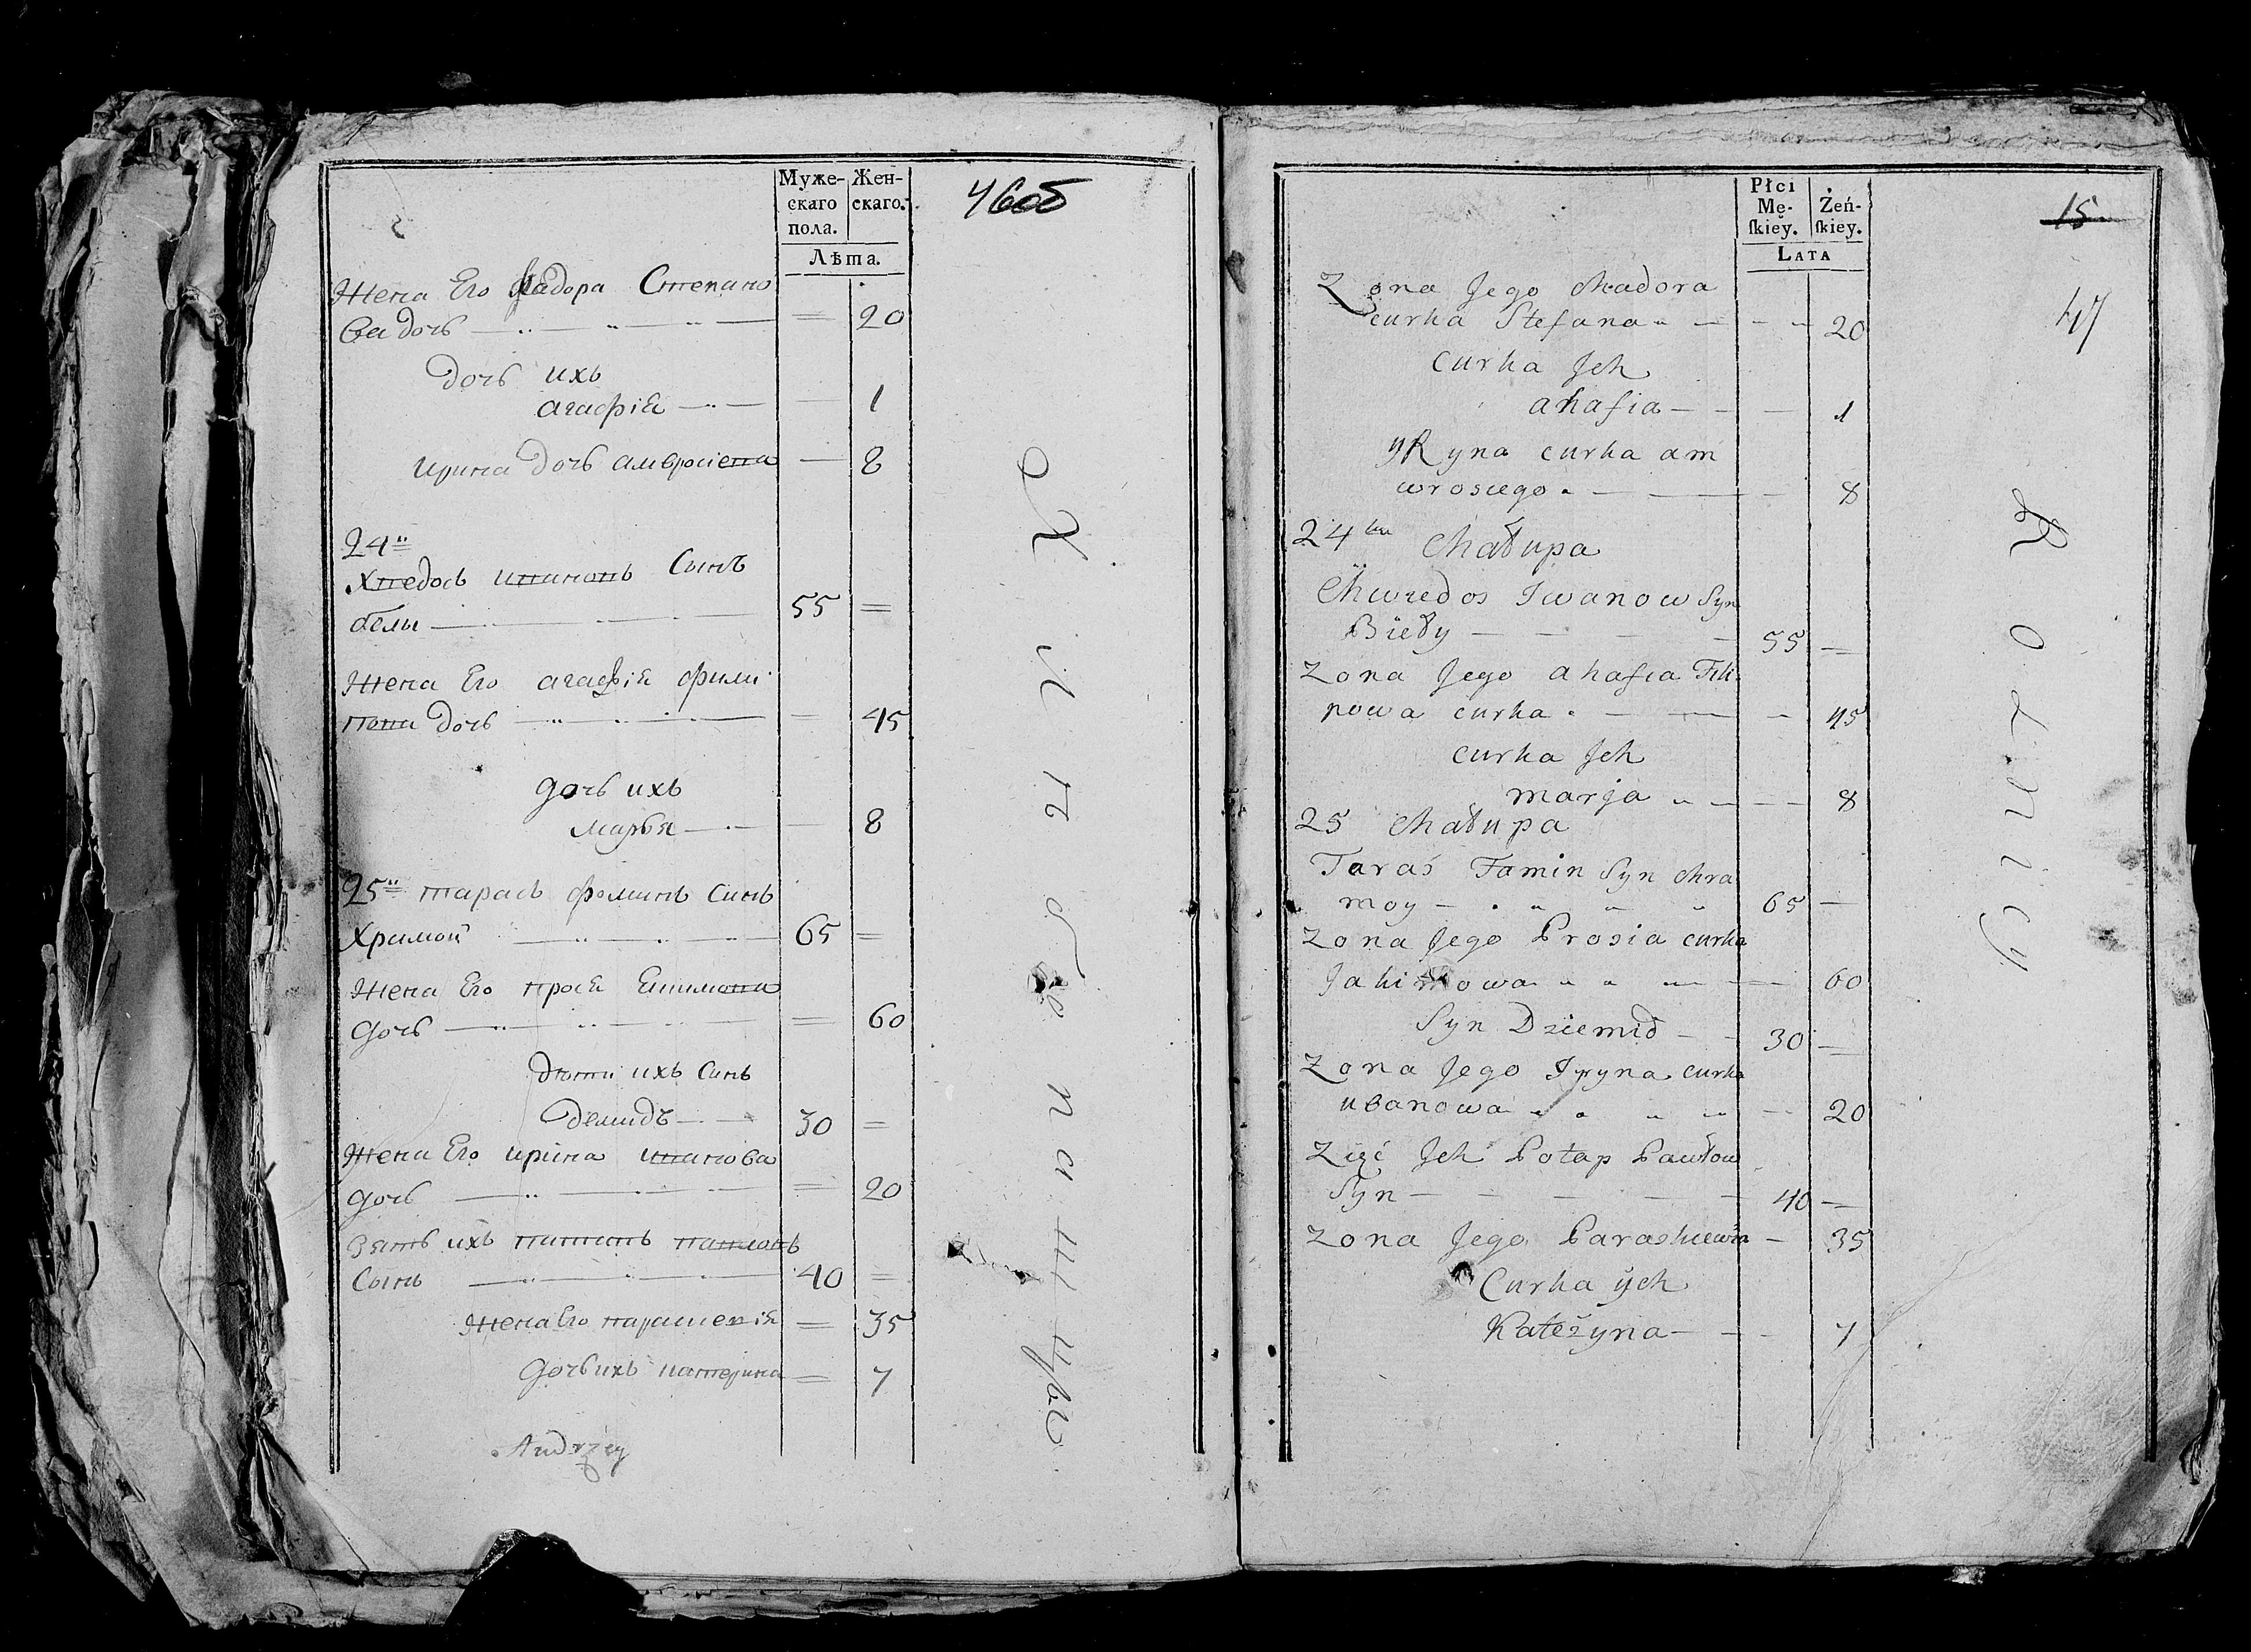 Муже-
скаго
пола.
Жен-
скаго.
Лѣта.
46об
Жена Его Хадора Степано
ва дочь 20
дочь ихъ
агафія 1
Ирина дочь амвросіева 8
24н
Хведось ивановъ Сынъ
белы 55
Жена Его агафія фили
пова дочь 45
дочь ихъ
марья 8
25н тарасъ фоминъ Синъ
Храмой 65
Жена Его прося
дочь 60
дети ихъ Синъ
демидъ 30
Жена Его ирина иванова
дочь 20
Зять ихъ потапъ павловъ
Сынъ 40
Жена Его параскевія 35
дочь ихъ катерина 7
Andrzey
Płci
Mę-
skiey.
Żeń-
skiey.
LATA
15
47
Zona Jego Chadora
curka Stefana 20
curka Jch
ahafia 1
yRyna curka am
wrosiego 8
24ta Chałupa
Chwiedos Iwanow Syn
Bieły 55
Zona Jego ahafia Fili
powa curka 45
curka Jch
marja 8
25 Chałupa
Taras Famin Syn Chra
moy 65
Zona Jego Prosia curka
Jakimowa 60
Syn Dziemid 30
Zona Jego Iryna curka
uvanowa 20
Zięć Jch Potap Pawłow
Syn 40
Zona Jego Paraskiewia 35
Curka ych
Kateżyna 7